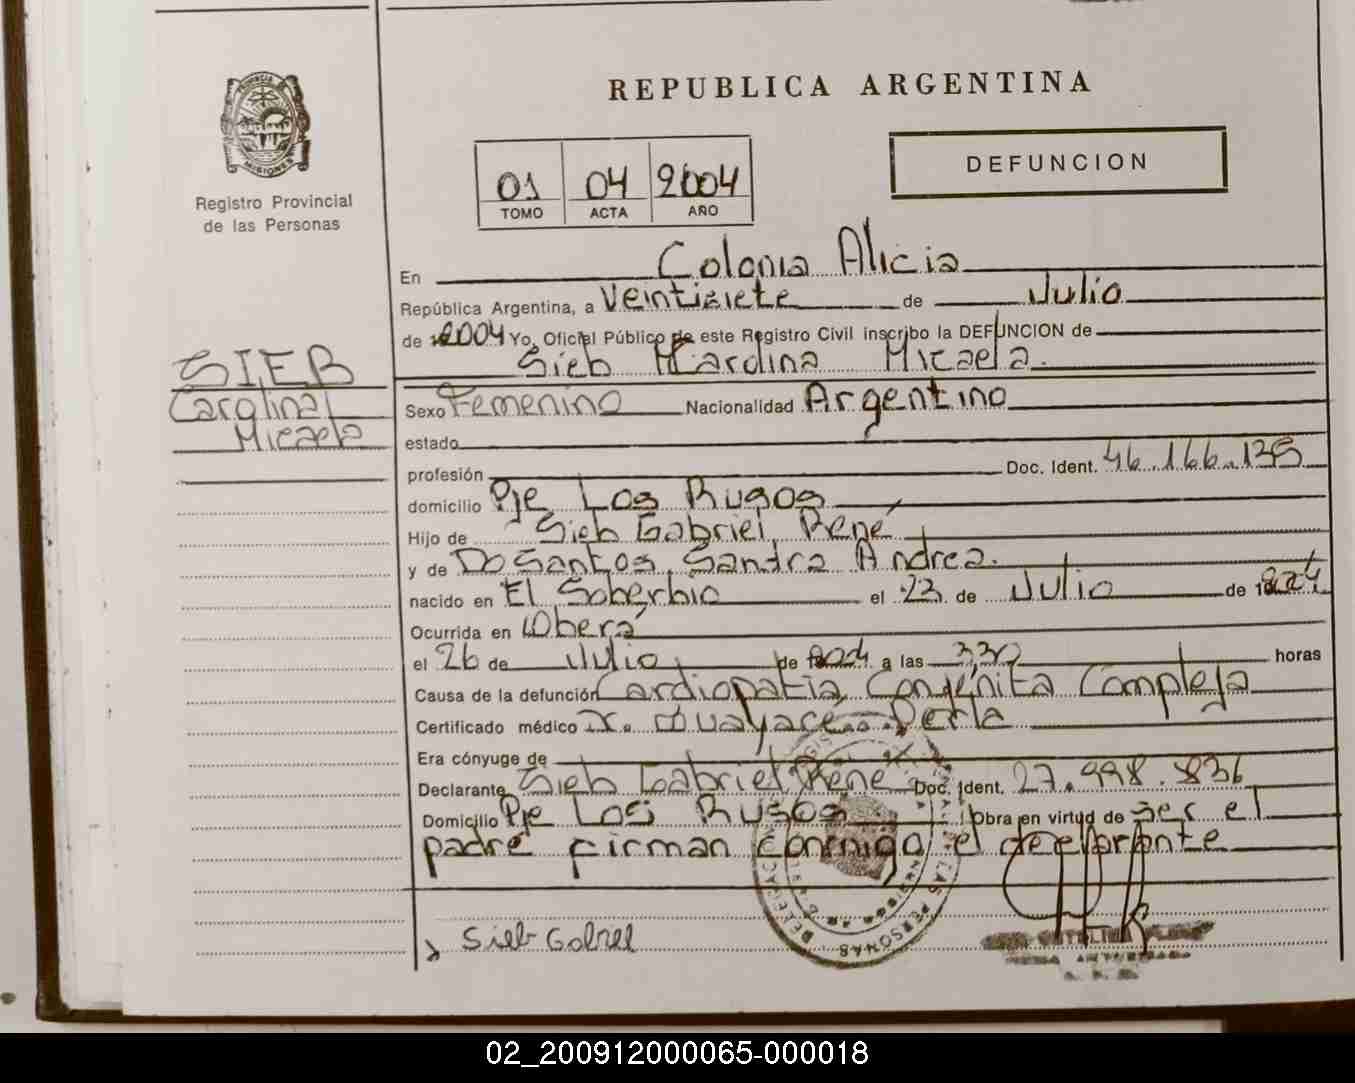 REPUBLICA ARGENTINA
PROVINCIA DE
MISIONES
Registro Provincial
de las Personas
01 04 2004
TOMO ACTA AÑO
DEFUNCION
En Colonia Alicia
República Argentina, a Veintisiete de Julio
de 2004 Yo, Oficial Público de este Registro Civil inscribo la DEFUNCION de
Sieb Carolina Micaela.
SIEB
Carolina
Micaela
Sexo Femenino Nacionalidad Argentino
estado
profesión Doc. Ident. 46.166.135
domicilio Pje Los Rusos
Hijo de Sieb Gabriel René
y de Do Santos Sandra Andrea.
nacido en El Soberbio el 23 de Julio de
Ocurrida en Oberá
el 26 de Julio de 2004 a las 3,30 horas
Causa de la defunción Cardiopatia Congénita Compleja
Certificado médico Perla
Era cónyuge de
Declarante Sieb Gabriel René Doc. Ident. 27.998.836
Domicilio Pje Los Rusos Obra en virtud de ser el
padre firman conmigo el declarante
Sieb Gabriel
PERSONAS
02_200912000065-000018